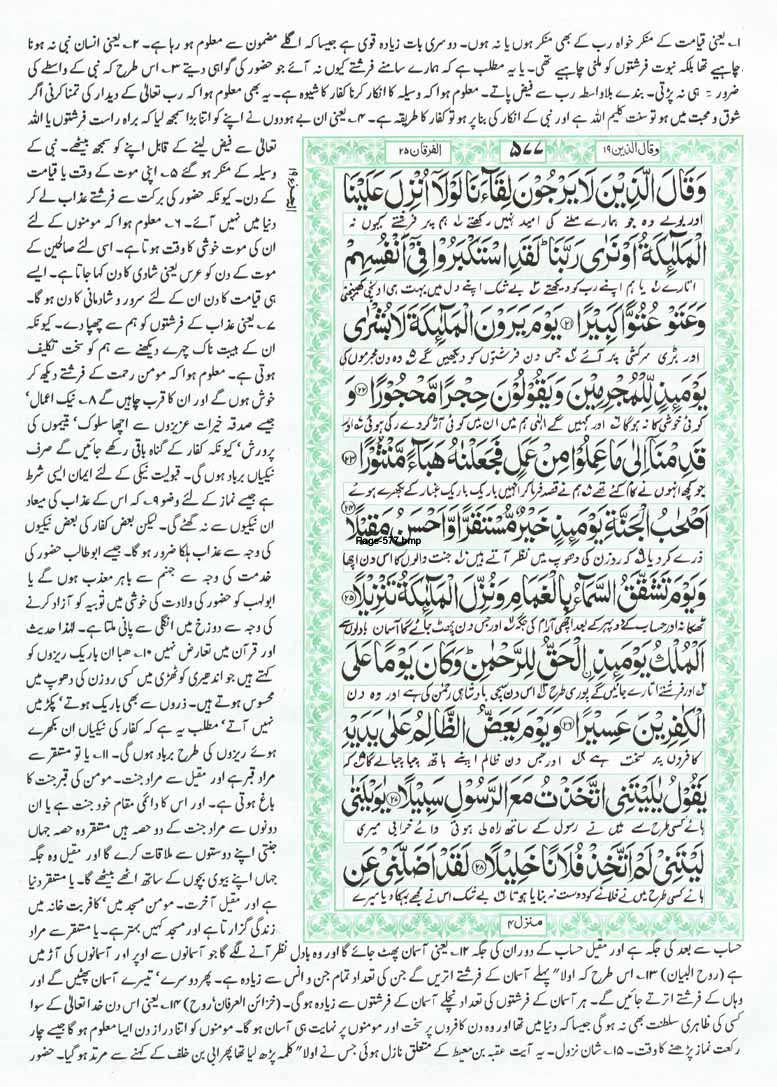 ۱۔ یعنی قیامت کے منکر خواہ رب کے بھی منکر ہوں یا نہ ہوں۔ دوسری بات زیادہ قوی ہے جیسا کہ اگلے مضمون سے معلوم ہو رہا ہے۔ ۲۔ یعنی انسان نبی نہ ہونا
چاہیے تھا بلکہ نبوت فرشتوں کو ملنی چاہیے تھی۔ یا یہ مطلب ہے کہ ہمارے سامنے فرشتے کیوں نہ آئے جو حضور کی گواہی دیتے ۳۔ اس طرح کہ نبی کے واسطے کی
ضرورت ہی نہ پڑتی۔ بندے بلاواسطہ رب سے فیض پاتے۔ معلوم ہوا کہ وسیلہ کا انکار کرنا کفار کا شیوہ ہے۔ یہ بھی معلوم ہوا کہ رب تعالیٰ کے دیدار کی تمنا کرنی اگر
شوق و محبت میں ہو تو سنت کلیم اللہ ہے اور نبی کے انکار کی بنا پر ہو تو کفار کا طریقہ ہے۔ ۴۔ یعنی ان بے ہودوں نے اپنے کو اتنا بڑا سمجھ لیا کہ براہ راست فرشتوں یا اللہ
وقال الذین ۱۹
۵۷۷
الفرقان ۲۵
وَقَالَ الَّذِيْنَ لَا يَرْجُوْنَ لِقَآءَنَا لَوْلَاۤ اُنْزِلَ عَلَيْنَا
اور بولے وہ جو ہمارے ملنے کی امید نہیں رکھتے ہم پر فرشتے کیوں نہ
الْمَلٰٓئِكَةُ اَوْ نَرٰى رَبَّنَا ؕ لَقَدِ اسْتَكْبَرُوْا فِيْۤ اَنْفُسِهِمْ
اتارے یا ہم اپنے رب کو دیکھتے بے شک اپنے دل میں بہت ہی اونچی کھینچی
وَعَتَوْ عُتُوًّا كَبِيْرًا ﴿۲۱﴾ يَوْمَ يَرَوْنَ الْمَلٰٓئِكَةَ لَا بُشْرٰى
اور بڑی سرکشی پر آئے جس دن فرشتوں کو دیکھیں گے وہ دن مجرموں کی
يَوْمَئِذٍ لِّلْمُجْرِمِيْنَ وَيَقُوْلُوْنَ حِجْرًا مَّحْجُوْرًا ﴿۲۲﴾ وَ
کوئی خوشی کا نہ ہوگا اور کہیں گے الٰہی ہم میں ان میں کوئی آڑ کردے رکی ہوئی اور
قَدِمْنَاۤ اِلٰى مَا عَمِلُوْا مِنْ عَمَلٍ فَجَعَلْنٰهُ هَبَآءً مَّنْثُوْرًا ﴿۲۳﴾
جو کچھ انہوں نے کام کئے تھے ہم نے قصد فرما کر انہیں باریک باریک غبار کے بکھرے ہوئے
اَصْحٰبُ الْجَنَّةِ يَوْمَئِذٍ خَيْرٌ مُّسْتَقَرًّا وَّاَحْسَنُ مَقِيْلًا ﴿۲۴﴾
Rage-577.bmp
ذرے کردیا کہ روزن کی دھوپ میں نظر آتے ہیں جنت والوں کا اس دن اچھا
وَيَوْمَ تَشَقَّقُ السَّمَآءُ بِالْغَمَامِ وَنُزِّلَ الْمَلٰٓئِكَةُ تَنْزِيْلًا ﴿۲۵﴾
ٹھکانہ اور حساب کے دوپہر کے بعد اچھی آرام کی جگہ اور جس دن پھٹ جائے گا آسمان بادلوں سے
اَلْمُلْكُ يَوْمَئِذِ اِ۟لْحَقُّ لِلرَّحْمٰنِ ؕ وَكَانَ يَوْمًا عَلَى
اور فرشتے اتارے جائیں گے پوری طرح اس دن سچی بادشاہی رحمٰن کی ہے اور وہ دن
الْكٰفِرِيْنَ عَسِيْرًا ﴿۲۶﴾ وَيَوْمَ يَعَضُّ الظَّالِمُ عَلٰى يَدَيْهِ
کافروں پر سخت ہے اور جس دن ظالم اپنے ہاتھ چبا چبالے گا کہ
يَقُوْلُ يٰلَيْتَنِى اتَّخَذْتُ مَعَ الرَّسُوْلِ سَبِيْلًا ﴿۲۷﴾ يٰوَيْلَتٰى
ہائے کسی طرح سے میں نے رسول کے ساتھ راہ لی ہوتی وائے خرابی میری
لَيْتَنِيْ لَمْ اَتَّخِذْ فُلَانًا خَلِيْلًا ﴿۲۸﴾ لَقَدْ اَضَلَّنِيْ عَنِ
ہائے کسی طرح میں نے فلانے کو دوست نہ بنایا ہوتا بے شک اس نے مجھے بہکا دیا میرے
منزل ۴
تعالیٰ سے فیض لینے کے قابل اپنے کو سمجھ بیٹھے۔ نبی کے
وسیلہ کے منکر ہو گئے ۵۔ اپنی موت کے وقت یا قیامت
کے دن۔ کیونکہ حضور کی برکت سے فرشتے عذاب لے کر
دنیا میں نہیں آئے۔ ۶۔ معلوم ہوا کہ مومنوں کے لئے
ان کی موت خوشی کا وقت ہوتا ہے۔ اسی لئے صالحین کے
موت کے دن کو عرس یعنی شادی کا دن کہا جاتا ہے۔ ایسے
ہی قیامت کا دن ان کے لئے سرور و شادمانی کا دن ہو گا۔
۷۔ یعنی عذاب کے فرشتوں کو ہم سے چھپا دے۔ کیونکہ
ان کے ہیبت ناک چہرے دیکھنے سے ہم کو سخت تکلیف
ہوتی ہے۔ معلوم ہوا کہ مومن رحمت کے فرشتے دیکھ کر
خوش ہوں گے اور ان کا قرب چاہیں گے ۸۔ نیک اعمال'
جیسے صدقہ خیرات عزیزوں سے اچھا سلوک' یتیموں کی
پرورش' کیونکہ کفار کے گناہ باقی رکھے جائیں گے صرف
نیکیاں برباد ہوں گی۔ قبولیت نیکی کے لئے ایمان ایسی شرط
ہے جیسے نماز کے لئے وضو ۹۔ کہ اس کے عذاب کی میعاد
ان نیکیوں سے نہ گھٹے گی۔ لیکن بعض کفار کی بعض نیکیوں
کی وجہ سے عذاب ہلکا ضرور ہو گا۔ جیسے ابو طالب حضور کی
خدمت کی وجہ سے جہنم سے باہر معذب ہوں گے یا
ابولہب کو حضور کی ولادت کی خوشی میں ثوبیہ کو آزاد کرنے
کی وجہ سے دوزخ میں انگلی سے پانی ملتا ہے۔ لہٰذا حدیث
اور قرآن میں تعارض نہیں ۱۰۔ ھبا ان باریک ریزوں کو
کہتے ہیں جو اندھیری کوٹھڑی میں کسی روزن کی دھوپ میں
محسوس ہوتے ہیں۔ ذروں سے بھی باریک ہوتے' پکڑ میں
نہیں آتے' مطلب یہ ہے کہ کفار کی نیکیاں ان بکھرے
ہوئے ریزوں کی طرح برباد ہوں گی۔ ۱۱۔ یا تو مستقر سے
مراد قبر ہے اور مقیل سے مراد جنت۔ مومن کی قبر جنت کا
باغ ہوتی ہے۔ اور اس کا دائمی مقام خود جنت ہے یا ان
دونوں سے مراد جنت کے دو حصہ ہیں مستقر وہ حصہ جہاں
جنتی اپنے دوستوں سے ملاقات کرے گا اور مقیل وہ جگہ
جہاں اپنے بیوی بچوں کے ساتھ اٹھے بیٹھے گا۔ یا مستقر دنیا
ہے اور مقیل آخرت۔ مومن مسجد میں' کافر بت خانہ میں
زندگی گزارتا ہے اور مسجد کہیں بہتر ہے۔ یا مستقر سے مراد
حساب سے بعد کی جگہ ہے اور مقیل حساب کے دوران کی جگہ ۱۲۔ یعنی آسمان پھٹ جائے گا اور وہ بادل نظر آنے لگے گا جو آسمانوں سے اوپر اور آسمانوں کی آڑ میں
ہے (روح البیان) ۱۳۔ اس طرح کہ اولا" پہلے آسمان کے فرشتے اتریں گے جن کی تعداد تمام جن و انس سے زیادہ ہے۔ پھر دوسرے' تیسرے آسمان پھٹیں گے اور
وہاں کے فرشتے اترتے جائیں گے۔ ہر آسمان کے فرشتوں کی تعداد نچلے آسمان کے فرشتوں سے زیادہ ہو گی۔ (خزائن العرفان' روح) ۱۴۔ یعنی اس دن خدا تعالیٰ کے سوا
کسی کی ظاہری سلطنت بھی نہ ہو گی جیسا کہ دنیا میں تھا اور وہ دن کافروں پر سخت اور مومنوں پر نہایت ہی آسان ہو گا۔ مومنوں کو اتنا دراز دن ایسا معلوم ہو گا جیسے چار
رکعت نماز پڑھنے کا وقت۔ ۱۵۔ شان نزول۔ یہ آیت عقبہ بن معیط کے متعلق نازل ہوئی جس نے اولا" کلمہ پڑھ لیا تھا پھر ابی بن خلف کے کہنے سے مرتد ہو گیا۔ حضور